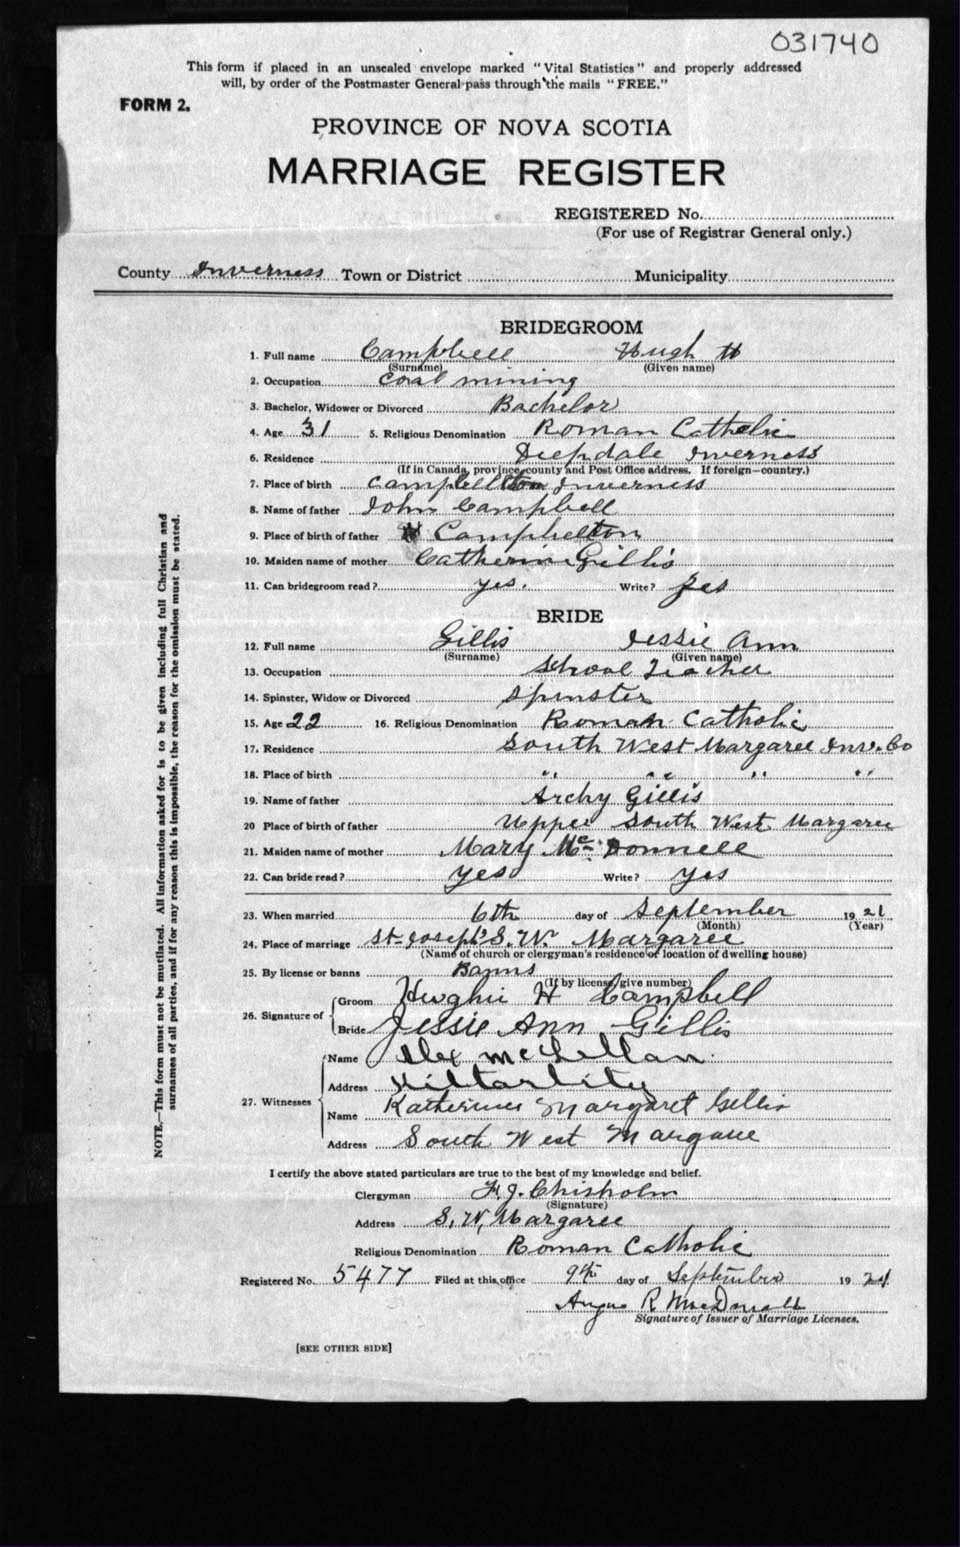 031740
This form if placed in an unsealed envelope marked "Vital Statistics" and properly addressed
will, by order of the Postmaster General pass through the mails "FREE."
FORM 2.
PROVINCE OF NOVA SCOTIA
MARRIAGE REGISTER
REGISTERED No.
(For use of Registrar General only.)
County Inverness Town or District Municipality
BRIDEGROOM
1. Full name Campbell Hugh H
(Surname) (Given name)
2. Occupation Coal mining
3. Bachelor, Widower or Divorced Bachelor
4. Age 31 5. Religious Denomination Roman Catholic
6. Residence Deepdale Inverness
(If in Canada, province, county and Post Office address. If foreign—country.)
7. Place of birth Campbellton Inverness
8. Name of father John Campbell
9. Place of birth of father Campbellton
10. Maiden name of mother Catherine Gillis
11. Can bridegroom read? yes. Write? yes
BRIDE
12. Full name Gillis Jessie Ann
(Surname) (Given name)
13. Occupation School Teacher
14. Spinster, Widow or Divorced Spinster
15. Age 22 16. Religious Denomination Roman Catholic
17. Residence South West Margaree Inv. Co
18. Place of birth " " " "
19. Name of father Archy Gillis
20 Place of birth of father Upper South West Margaree
21. Maiden name of mother Mary McDonnell
22. Can bride read? yes Write? yes
23. When married 6th day of September 1921
(Month) (Year)
24. Place of marriage St. Joseph's S. W. Margaree
(Name of church or clergyman's residence or location of dwelling house)
25. By license or banns Banns
(If by license, give number)
26. Signature of Groom Hughie H Campbell
Bride Jessie Ann Gillis
27. Witnesses Name Alex McLellan
Address Kiltarlity
Name Katherine Margaret Gillis
Address South West Margaree
I certify the above stated particulars are true to the best of my knowledge and belief.
Clergyman F. J. Chisholm
(Signature)
Address S. W. Margaree
Religious Denomination Roman Catholic
Registered No. 5477 Filed at this office 9th day of September 1921
Angus R MacDonald
Signature of Issuer of Marriage Licenses.
[SEE OTHER SIDE]
NOTE.—This form must not be mutilated. All information asked for is to be given including full Christian and
surnames of all parties, and if for any reason this is impossible, the reason for the omission must be stated.